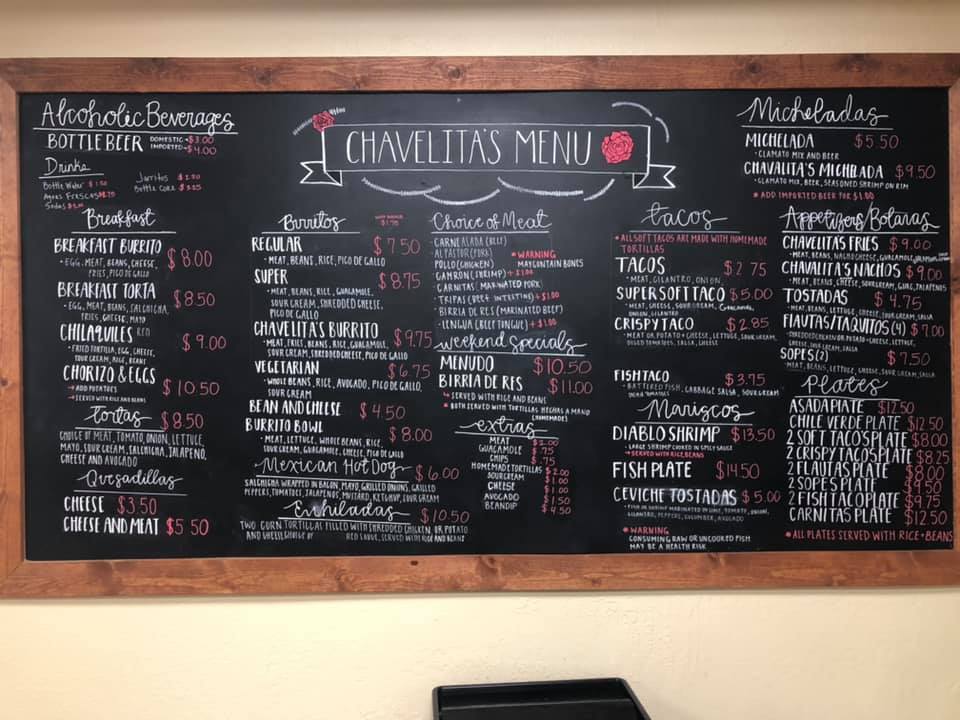 CHAVELITA'S MENU
Alcoholic Beverages
BOTTLE BEER DOMESTIC - $3.00
IMPORTED - $4.00
Drinks
Bottle Water
Aguas Frescas
Sodas
Jarritos
Bottle Coke
Breakfast
BREAKFAST BURRITO $8.00
• EGG, MEAT, BEANS, CHEESE,
FRIES, PICO DE GALLO
BREAKFAST TORTA $8.50
• EGG, MEAT, BEANS, SALCHICHA,
FRIES, CHEESE, MAYO
CHILAQUILES RED $9.00
• FRIED TORTILLA, EGG, CHEESE,
SOUR CREAM, RICE, BEANS
CHORIZO & EGGS $10.50
→ ADD POTATOES
→ SERVED WITH RICE AND BEANS
tortas $8.50
CHOICE OF MEAT, TOMATO, ONION, LETTUCE,
MAYO, SOUR CREAM, SALCHICHA, JALAPENO,
CHEESE AND AVOCADO
Quesadillas
CHEESE $3.50
CHEESE AND MEAT $5.50
Burritos
$1.75
REGULAR $7.50
• MEAT, BEANS, RICE, PICO DE GALLO
SUPER $8.75
• MEAT, BEANS, RICE, GUACAMOLE,
SOUR CREAM, SHREDDED CHEESE,
PICO DE GALLO
CHAVELITA'S BURRITO $9.75
• MEAT, FRIES, BEANS, RICE, GUACAMOLE,
SOUR CREAM, SHREDDED CHEESE, PICO DE GALLO
VEGETARIAN $6.75
• WHOLE BEANS, RICE, AVOCADO, PICO DE GALLO,
SOUR CREAM
BEAN AND CHEESE $4.50
BURRITO BOWL $8.00
• MEAT, LETTUCE, WHOLE BEANS, RICE,
SOUR CREAM, GUACAMOLE, CHEESE, PICO DE GALLO
Mexican Hot Dog $6.00
SALCHICHA WRAPPED IN BACON, MAYO, GRILLED ONIONS, GRILLED
PEPPERS, TOMATOES, JALAPENOS, MUSTARD, KETCHUP, SOUR CREAM
Enchiladas $10.50
TWO CORN TORTILLAS FILLED WITH SHREDDED CHICKEN, OR POTATO
AND CHEESE CHOICE OF RED SAUCE, SERVED WITH RICE AND BEANS
Choice of Meat
• CARNE ASADA (BEEF)
• AL PASTOR (PORK)
POLLO (CHICKEN)
* WARNING
MAY CONTAIN BONES
(SHRIMP) + $1.00
CARNITAS MARINATED PORK
• TRIPAS (BEEF INTESTINE) + $1.00
BIRRIA DE RES (MARINATED BEEF)
• LENGUA (BEEF TONGUE) + $1.00
weekend Specials
MENUDO $10.50
BIRRIA DE RES $11.00
↳ SERVED WITH RICE AND BEANS
* BOTH SERVED WITH TORTILLAS HECHAS A MANO
(HOMEMADE)
extras
MEAT $2.00
GUACAMOLE $.75
CHIPS $.75
HOMEMADE TORTILLAS $2.00
SOUR CREAM $1.00
CHEESE $1.00
AVOCADO $1.50
BEAN DIP $4.50
tacos
* ALL SOFT TACOS ARE MADE WITH HOMEMADE
TORTILLAS
TACOS $2.75
• MEAT, CILANTRO, ONION
SUPER SOFT TACO $5.00
• MEAT, CHEESE, SOUR CREAM,
ONION, CILANTRO
CRISPY TACO $2.85
• MEAT OR POTATO + CHEESE, LETTUCE, SOUR CREAM,
DICED TOMATOES, SALSA, CHEESE
FISH TACO $3.75
• BATTERED FISH, CABBAGE SALSA, SOUR CREAM
DICED TOMATOES
Mariscos
DIABLO SHRIMP $13.50
• LARGE SHRIMP COOKED IN SPICY SAUCE
→ SERVED WITH RICE, BEANS
FISH PLATE $14.50
CEVICHE TOSTADAS $5.00
• FISH OR SHRIMP MARINATED IN LIME, TOMATO, ONION,
CILANTRO, PEPPERS, CUCUMBER, AVOCADO
* WARNING
CONSUMING RAW OR UNCOOKED FISH
MAY BE A HEALTH RISK
Micheladas
MICHELADA $5.50
• CLAMATO MIX AND BEER
CHAVALITA'S MICHELADA $9.50
• CLAMATO MIX, BEER, SEASONED SHRIMP ON RIM
* ADD IMPORTED BEER FOR $1.00
Appetizers/Botanas
CHAVELITA'S FRIES $9.00
• MEAT, BEANS, NACHO CHEESE, GUACAMOLE,
CHAVALITA'S NACHOS $9.00
• MEAT, BEANS, CHEESE, SOUR CREAM, GUAC, JALAPENOS
TOSTADAS $4.75
• MEAT, BEANS, LETTUCE, CHEESE, SOUR CREAM, SALSA
FLAUTAS/TAQUITOS (4) $7.00
• SHREDDED CHICKEN OR POTATO + CHEESE, LETTUCE,
CHEESE, SOUR CREAM, SALSA
SOPES (2) $7.50
• MEAT, BEANS, LETTUCE, CHEESE, SOUR CREAM, SALSA
Plates
ASADA PLATE $12.50
CHILE VERDE PLATE $12.50
2 SOFT TACO'S PLATE $8.00
2 CRISPY TACOS PLATE $8.25
2 FLAUTAS PLATE $8.00
2 SOPES PLATE $9.50
2 FISH TACO PLATE $9.75
CARNITAS PLATE $12.50
* ALL PLATES SERVED WITH RICE + BEANS